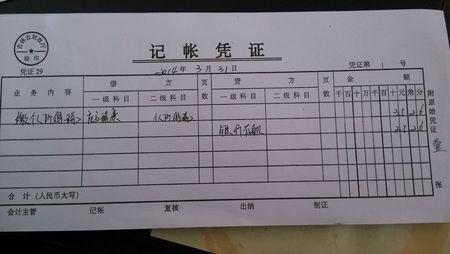 吉林省财政厅
检印
记帐凭证
凭证29
2014年3月31日
凭证第1号
业务内容 借方 页数 贷方 页数 金额
一级科目 二级科目 一级科目 二级科目 千百十万千百十元角分
缴个人所得税 个人所得税
银行存款
附原始凭证 壹 张
合计（人民币大写）
会计主管 记帐 复核 出纳 制证